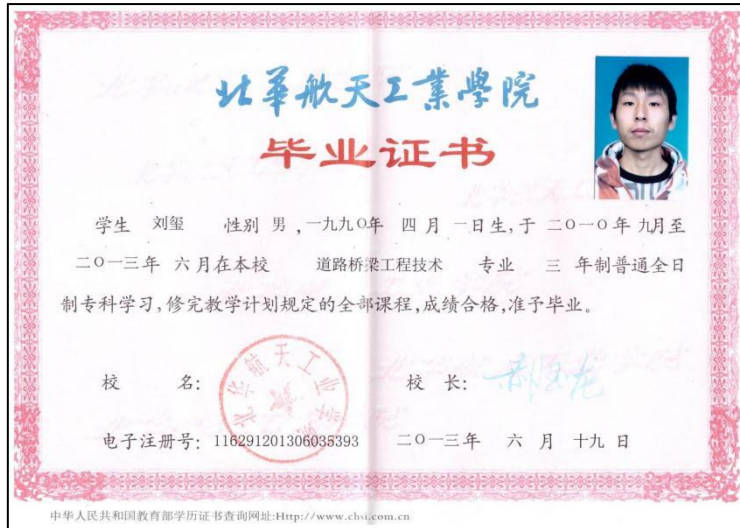 北華航天工業學院
毕业证书
学生 刘玺 性别 男 ,一九九〇年 四 月 一日生,于 二〇一〇年 九月至
二〇一三年 六月在本校 道路桥梁工程技术 专业 三 年制普通全日
制专科学习,修完教学计划规定的全部课程,成绩合格,准予毕业。
校 名: 北华航天工业学院 校 长:
电子注册号: 116291201306035393 二〇一三年 六 月 十九 日
中华人民共和国教育部学历证书查询网址:Http://www.chsi.com.cn